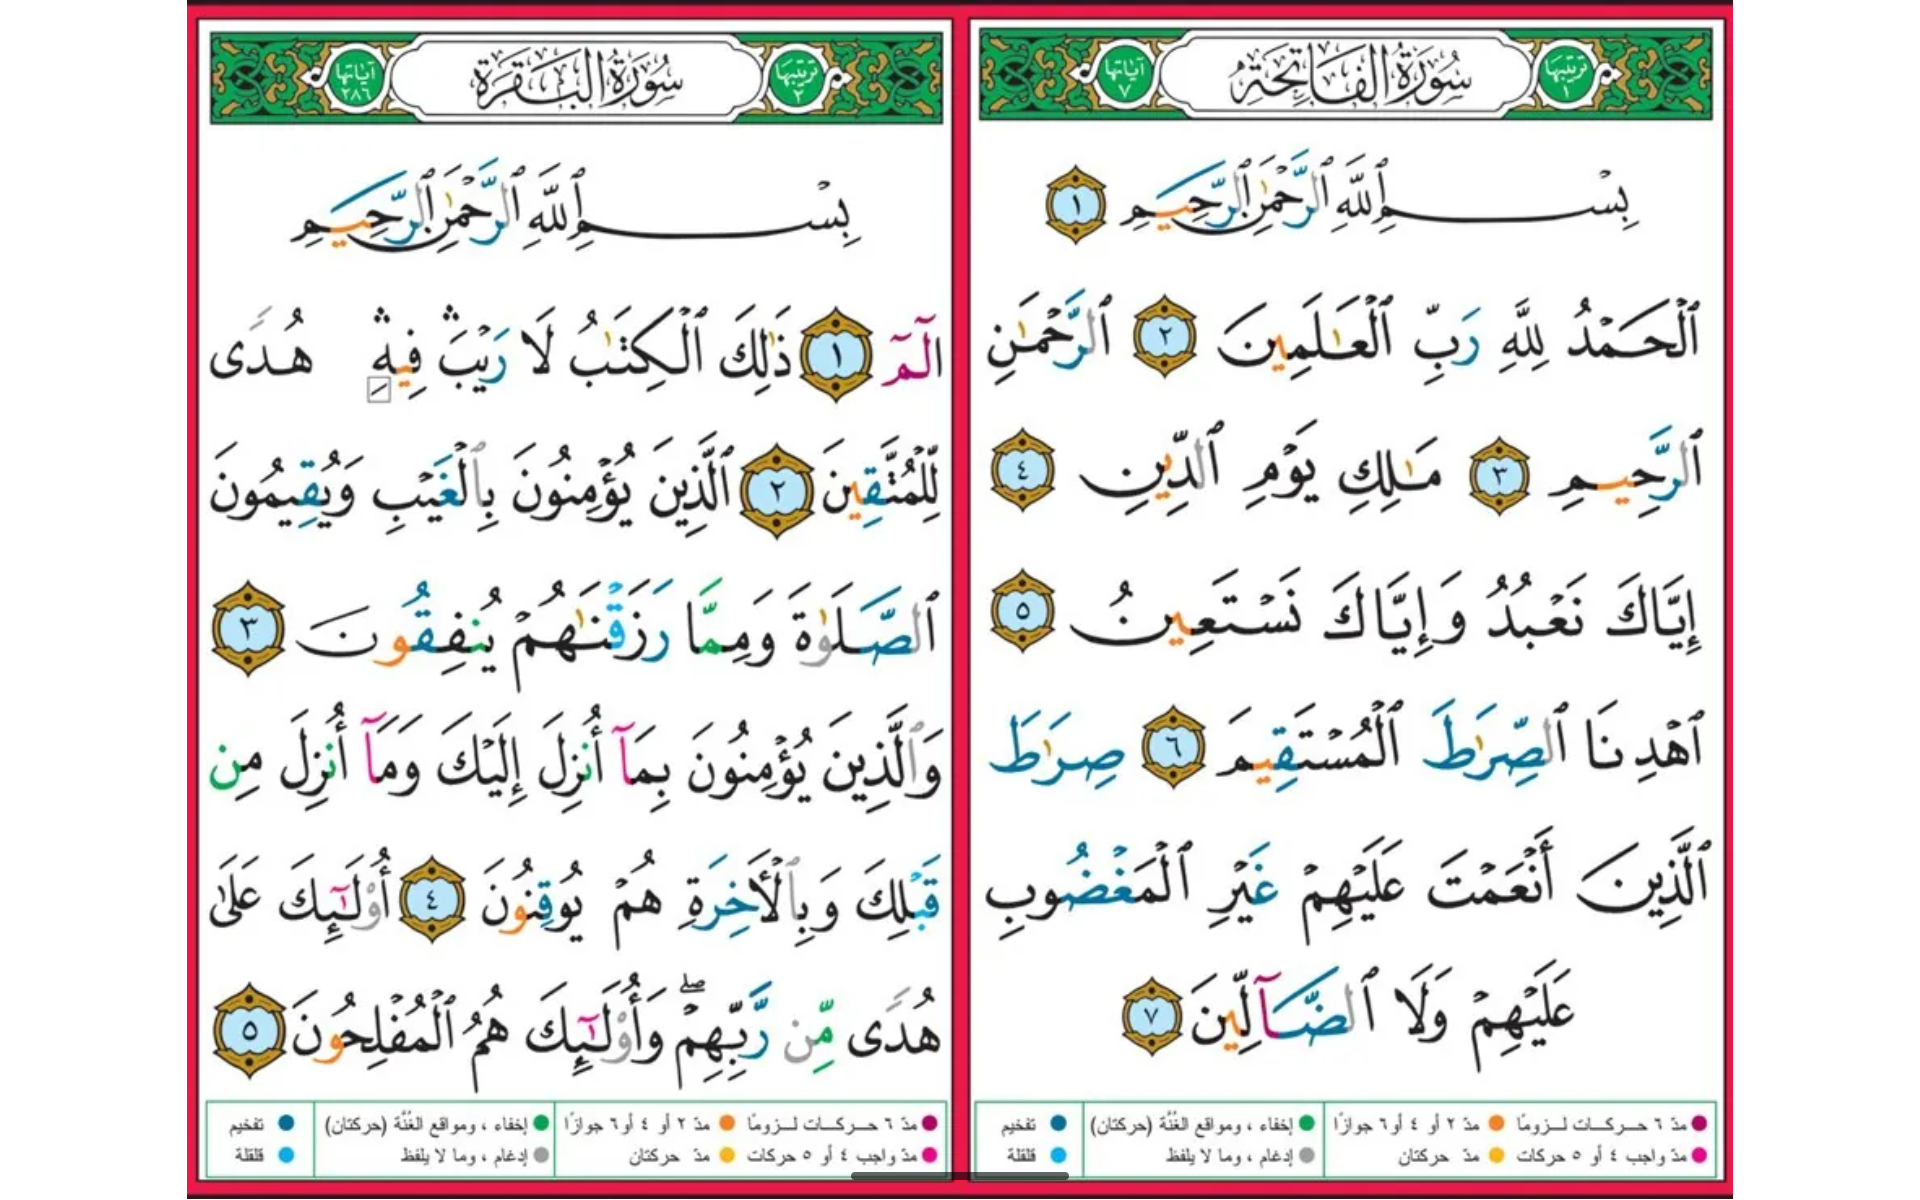 ترتيبها ١ سُورَةُ الفَاتِحَةِ آياتها ٧
بِسْمِ ٱللَّهِ ٱلرَّحْمَٰنِ ٱلرَّحِيمِ ١
ٱلْحَمْدُ لِلَّهِ رَبِّ ٱلْعَٰلَمِينَ ٢ ٱلرَّحْمَٰنِ
ٱلرَّحِيمِ ٣ مَٰلِكِ يَوْمِ ٱلدِّينِ ٤
إِيَّاكَ نَعْبُدُ وَإِيَّاكَ نَسْتَعِينُ ٥
ٱهْدِنَا ٱلصِّرَٰطَ ٱلْمُسْتَقِيمَ ٦ صِرَٰطَ
ٱلَّذِينَ أَنْعَمْتَ عَلَيْهِمْ غَيْرِ ٱلْمَغْضُوبِ
عَلَيْهِمْ وَلَا ٱلضَّآلِّينَ ٧
مدّ ٦ حركات لزومًا مدّ ٢ أو ٤ أو ٦ جوازًا إخفاء ، ومواقع الغُنَّة (حركتان) تفخيم
مدّ واجب ٤ أو ٥ حركات مدّ حركتان إدغام ، وما لا يلفظ قلقلة
ترتيبها ٢ سُورَةُ البَقَرَةِ آياتها ٢٨٦
بِسْمِ ٱللَّهِ ٱلرَّحْمَٰنِ ٱلرَّحِيمِ
الٓمٓ ١ ذَٰلِكَ ٱلْكِتَٰبُ لَا رَيْبَ ۛ فِيهِ ۛ هُدًى
لِّلْمُتَّقِينَ ٢ ٱلَّذِينَ يُؤْمِنُونَ بِٱلْغَيْبِ وَيُقِيمُونَ
ٱلصَّلَوٰةَ وَمِمَّا رَزَقْنَٰهُمْ يُنفِقُونَ ٣
وَٱلَّذِينَ يُؤْمِنُونَ بِمَآ أُنزِلَ إِلَيْكَ وَمَآ أُنزِلَ مِن
قَبْلِكَ وَبِٱلْأَخِرَةِ هُمْ يُوقِنُونَ ٤ أُوْلَٰٓئِكَ عَلَىٰ
هُدًى مِّن رَّبِّهِمْ ۖ وَأُوْلَٰٓئِكَ هُمُ ٱلْمُفْلِحُونَ ٥
مدّ ٦ حركات لزومًا مدّ ٢ أو ٤ أو ٦ جوازًا إخفاء ، ومواقع الغُنَّة (حركتان) تفخيم
مدّ واجب ٤ أو ٥ حركات مدّ حركتان إدغام ، وما لا يلفظ قلقلة